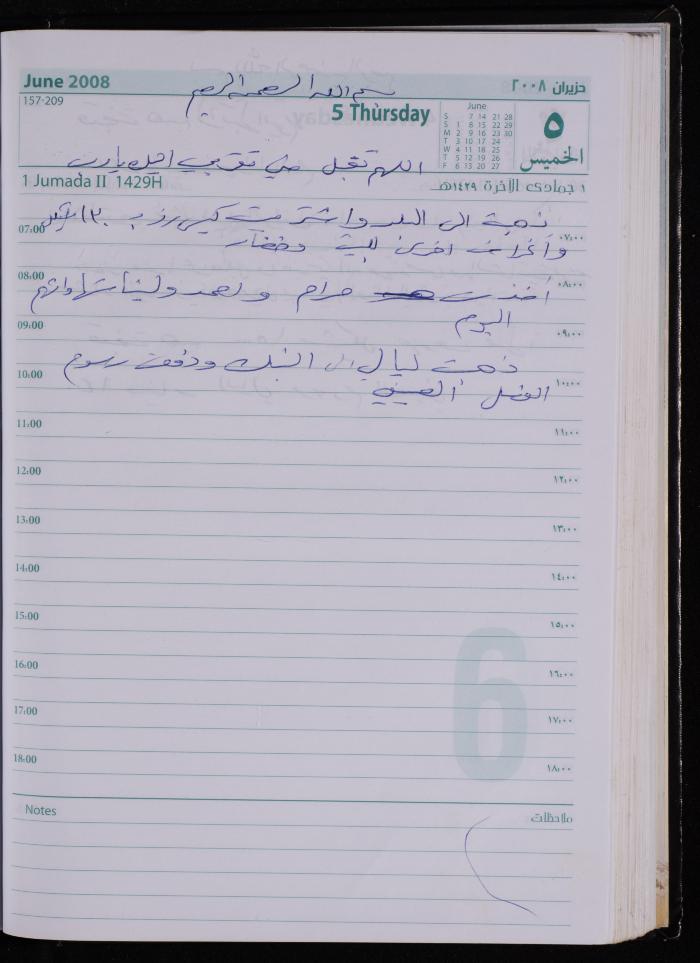 June 2008
حزيران ٢٠٠٨
بسم الله الرحمن الرحيم
157-209
5 Thursday
June
S 7 14 21 28
S 1 8 15 22 29
M 2 9 16 23 30
T 3 10 17 24
W 4 11 18 25
T 5 12 19 26
F 6 13 20 27
٥
الخميس
اللهم تقبل مني يارب
1 Jumada II 1429H
١ جمادى الآخرة ١٤٢٩هـ
ذهبت الى البلد واشتريت كيس رز ب
07:00 ٠٧:٠٠
وأغراض اخرى للبيت وخضار
08:00 ٠٨:٠٠
أخذت مرام ولصمد
اليوم
09:00 ٠٩:٠٠
ذهبت ليال الى البنك ودفعت رسوم
10:00 ١٠:٠٠
الفصل الصيفي
11:00 ١١:٠٠
12:00 ١٢:٠٠
13:00 ١٣:٠٠
14:00 ١٤:٠٠
15:00 ١٥:٠٠
16:00 ١٦:٠٠
17:00 ١٧:٠٠
18:00 ١٨:٠٠
6
Notes
ملاحظات